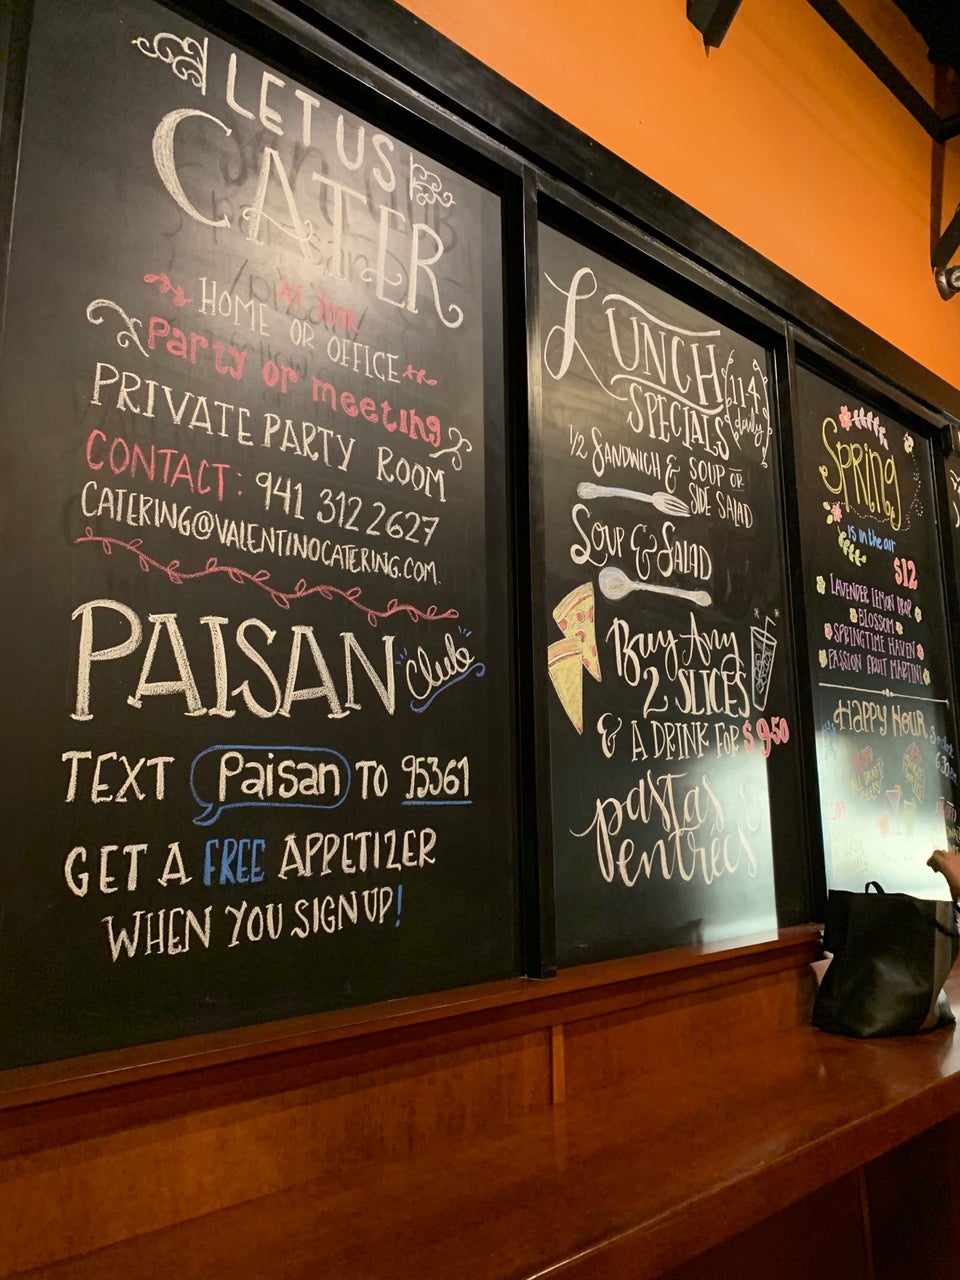 LET US
CATER
AT YOUR
HOME OR OFFICE
Party or meeting
PRIVATE PARTY ROOM
CONTACT: 941 312 2627
CATERING@VALENTINOCATERING.COM
PAISAN club
TEXT Paisan TO 95361
GET A FREE APPETIZER
WHEN YOU SIGN UP!
LUNCH
SPECIALS
11-4
daily
1/2 SANDWICH & SOUP OR
SIDE SALAD
SOUP & SALAD
Buy Any
2 SLICES
& A DRINK FOR $9.50
pastas &
entrées
Spring
is in the air
$12
LAVENDER LEMON DROP
BLOSSOM
SPRINGTIME HAVEN
PASSION FRUIT MARTINI
HAPPY HOUR